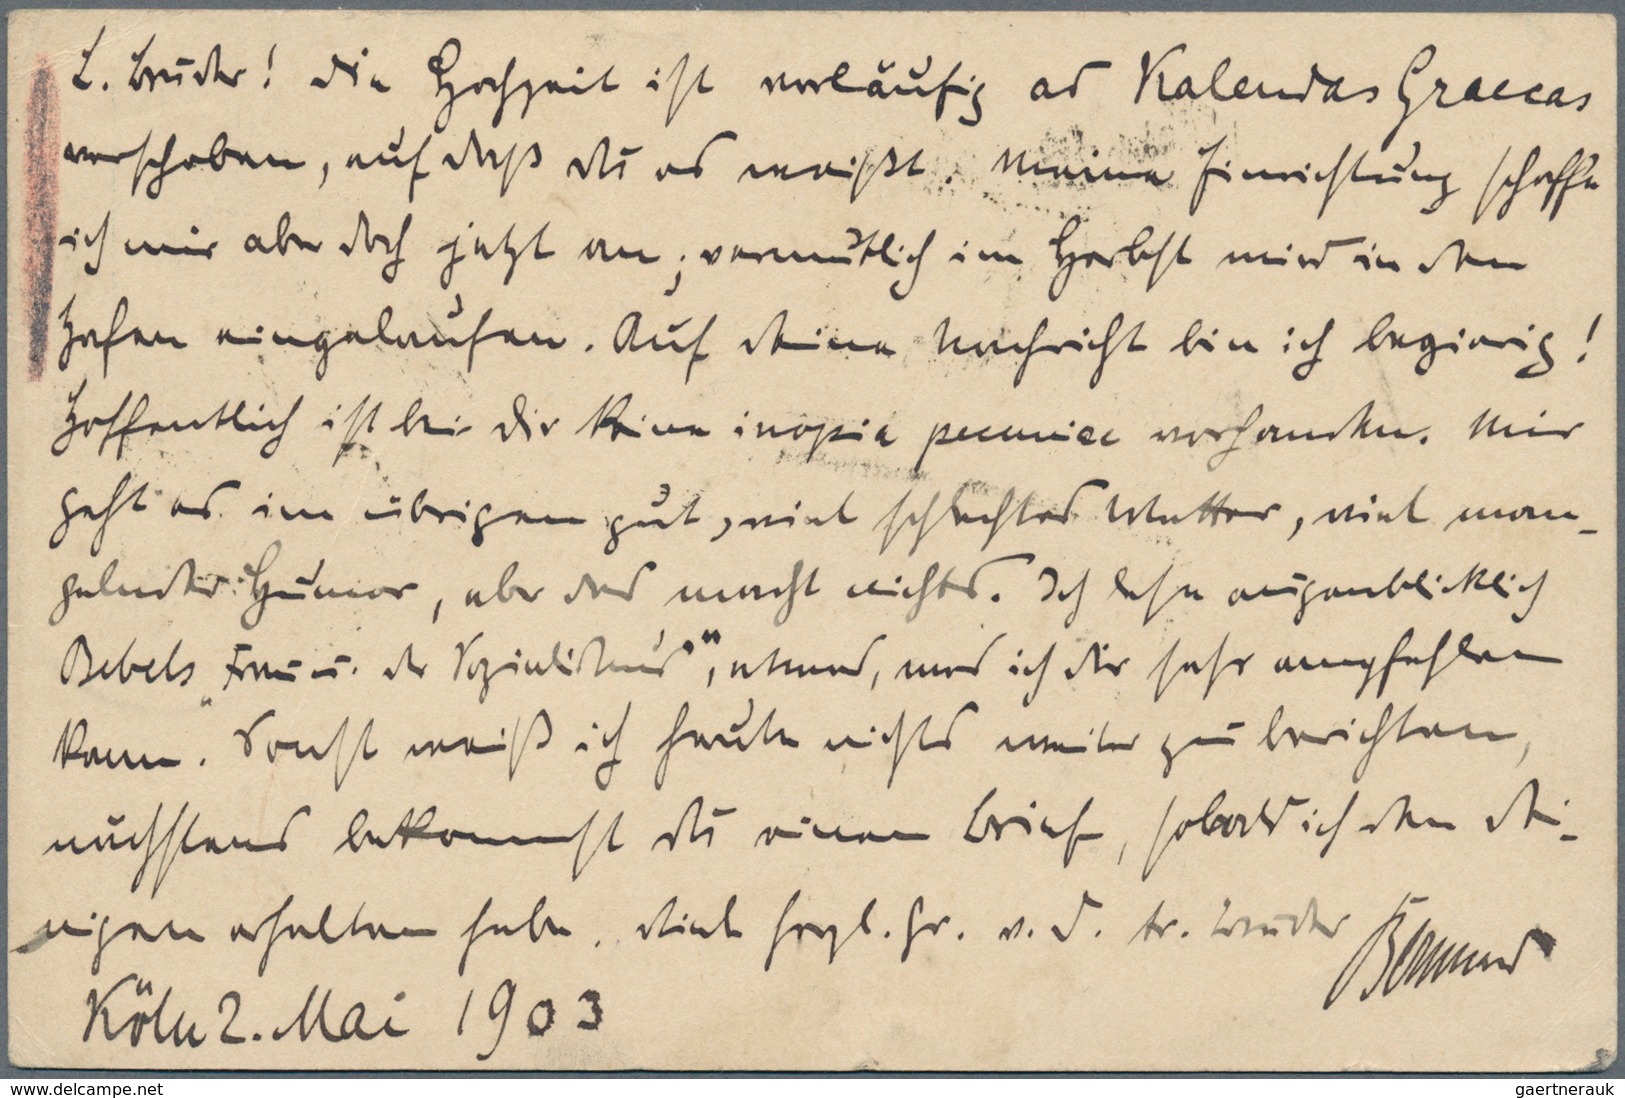 L. Bruder! Die Hochzeit ist vorläufig ad Kalendas Graecas
verschoben, auf daß du es weißt. Meine Einrichtung schaffe
ich mir aber doch jetzt an; vermutlich im Herbst wird in den
Hafen eingelaufen. Auf deine Nachricht bin ich begierig!
Hoffentlich ist bei Dir keine inopia pecuniae vorhanden. Mir
geht es im übrigen gut, viel schlechtes Wetter, viel man-
gelnder Humor, aber das macht nichts. Ich lese augenblicklich
Bebels „Frau u. der Sozialismus", etwas, was ich dir sehr empfehlen
kann. Sonst weiß ich heute nichts weiter zu berichten,
nächstens bekommst du einen Brief, sobald ich den dei-
nigen erhalten habe. Viele herzl. Gr. v. d. tr. Bruder
Köln 2. Mai 1903
www.delcampe.net
gaertnerauk